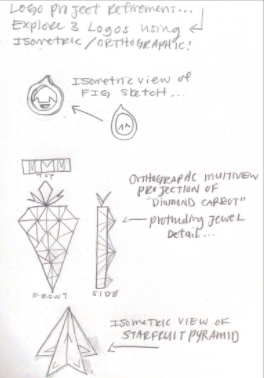 LOGO PROJECT REFINEMENT...
EXPLORE 3 LOGOS USING
ISOMETRIC/ORTHOGRAPHIC!
ISOMETRIC VIEW OF
FIG SKETCH...
TOP
ORTHOGRAPHIC MULTIVIEW
PROJECTION OF
"DIAMOND CARROT"
protruding JEWEL
DETAIL...
FRONT
SIDE
ISOMETRIC VIEW OF
STARFRUIT PYRAMID